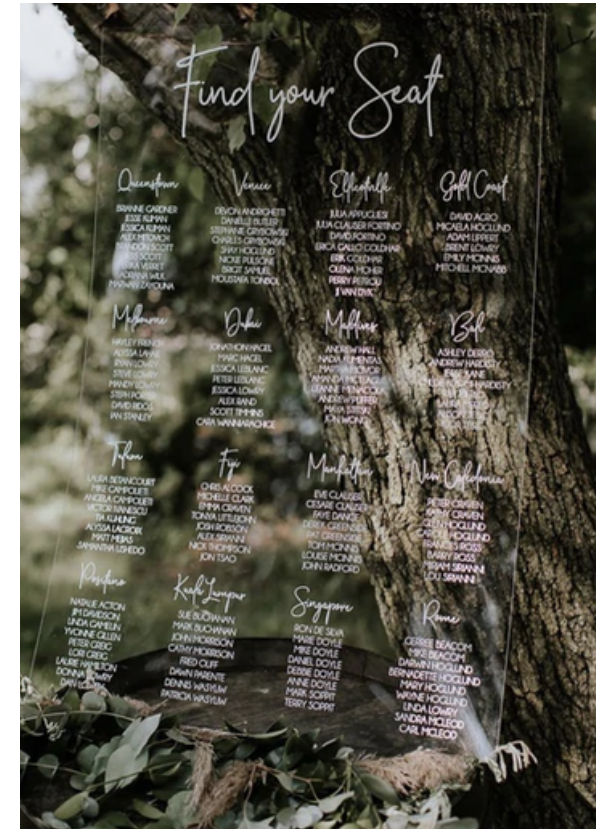 Find your Seat
Queenstown
BRIANNE GARDNER
JESSE KLIMAN
JESSICA KLIMAN
ALEX MITOVICH
BRANDON SCOTT
SCOTT
VERRET
ADRIANA WILK
MARWAN ZAYOUNA
Venice
DEVON ANDRIGHETTI
DANIELLE BUTLER
STEPHANIE GRYBOWSKI
CHARLES GRYBOWSKI
SHAY HOGLUND
NICKE PULSONE
BRIGIT SAMUEL
MOUSTAFA TONBOL
Ellicottville
JULIA APPUGLIESI
JULIA CLAUSER FORTINO
DAVID FORTINO
ERICA GALLO GOLDHAR
ERIK GOLDHAR
OLENA MOHER
PERRY PETROU
JJ VAN DYK
Gold Coast
DAVID AGRO
MICAELA HOGLUND
ADAM LIPPERT
BRENT LOWREY
EMILY MCINNIS
MITCHELL MCNABB
Melbourne
HAYLEY FRENCH
ALYSSA LAHAIL
RYAN LOWRY
STEVE LOWRY
MANDY LOWRY
STEPH PORTER
DAVID RIDOS
IAN STANLEY
Dubai
JONATHON HAGEL
MARC HAGEL
JESSICA LEBLANC
PETER LEBLANC
JESSICA LOWRY
ALEX RAND
SCOTT TIMMINS
CARA WANNIARACHIGE
Maldives
ANDREW HALL
NADIA KLIMENTAS
MARTHA MCIVOR
AMANDA MCTEAGUE
LEANNE MENACOLA
ANDREW PUFFER
MAYA STITSKI
JON WONG
Bali
ASHLEY DERRO
ANDREW HARDISTY
HARDISTY
Tulum
LAURA BETANCOURT
MIKE CAMPOLIETI
ANGELA CAMPOLIETI
VICTOR IVANESCU
TIA KUHLING
ALYSSA LACROIX
MATT MEJIAS
SAMANTHA USHEDO
Fiji
CHRIS ALCOCK
MICHELLE CLARK
EMMA CRAVEN
TONYA LITTLEJOHN
JOSH ROBSON
ALEX SIRIANNI
NICK THOMPSON
JON TSAO
Manhattan
EVE CLAUSER
CESARE CLAUSER
FAYE DANGE
DEREK GREENSIDE
PAT GREENSIDE
TOM MCINNIS
LOUISE MCINNIS
JOHN RADFORD
New Caledonia
PETER CRAVEN
KATHY CRAVEN
GLEN HOGLUND
CAROLE HOGLUND
FRANCES ROSS
BARRY ROSS
MIRIAM SIRIANNI
LOU SIRIANNI
Positano
NATALIE ACTON
JIM DAVIDSON
LINDA GAMELIN
YVONNE GILLEN
PETER GREIG
LORI GREIG
LAURIE HAMILTON
DONNA LOWRY
DAN LOWRY
Kuala Lumpur
SUE BUCHANAN
MARK BUCHANAN
JOHN MORRISON
CATHY MORRISON
FRED OUFF
DAWN PARENTE
DENNIS WASYLIW
PATRICIA WASYLIW
Singapore
RON DE SILVA
MARIE DOYLE
MIKE DOYLE
DANIEL DOYLE
DEBBIE DOYLE
ANNE DOYLE
MARK SOPPIT
TERRY SOPPIT
Rome
CERREE BEACOM
MIKE BEACOM
DARWIN HOGLUND
BERNADETTE HOGLUND
MARY HOGLUND
WAYNE HOGLUND
LINDA LOWRY
SANDRA MCLEOD
CARL MCLEOD